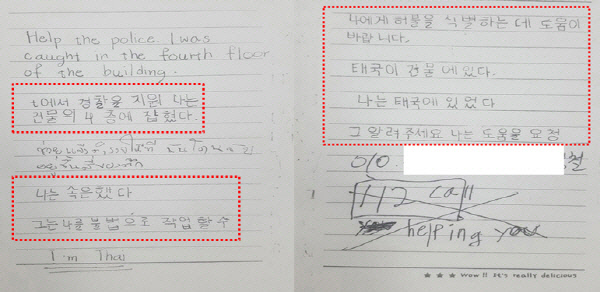 Help the police. I was
caught in the fourth floor
of the building.
t에서 경찰을 지원 나는
건물의 4 층에 잡혔다.
나는 속은했다
그는 나를 불법으로 작업 할 수
I'm Thai
나에게 허물을 식별하는 데 도움이
바랍니다.
태국이 건물에 있다.
나는 태국에 있었다
그 알려주세요 나는 도움을 요청
112 call
helping you
★★★ Wow!! It's really delicious